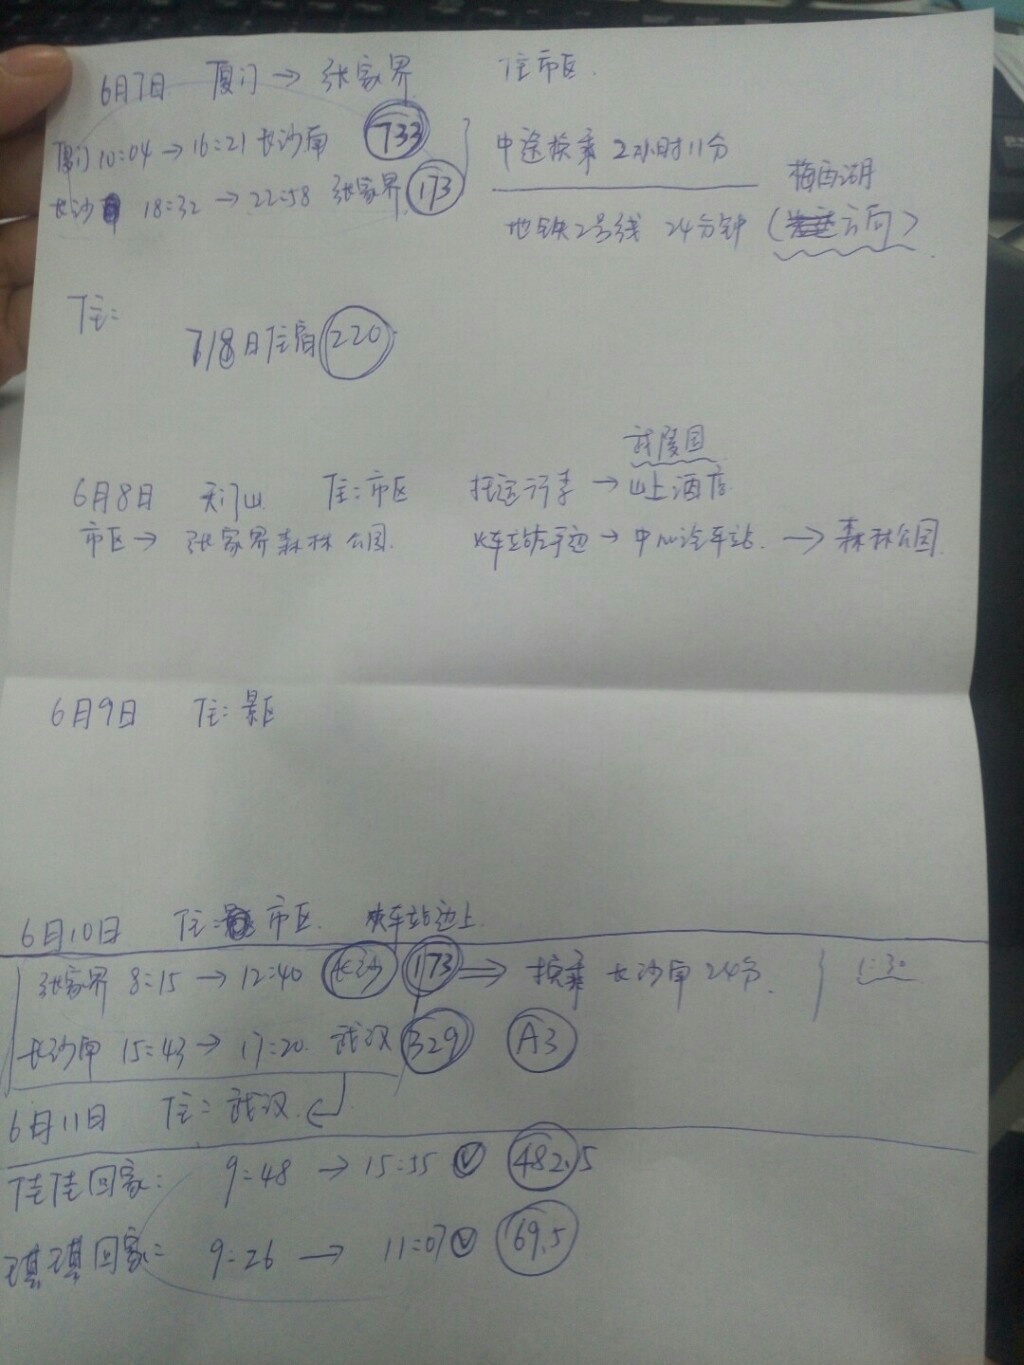 6月7日 厦门 → 张家界 住市区.
厦门 10:04 → 16:21 长沙南 733
中途换乘 2小时11分
长沙南 18:32 → 22:58 张家界 173
梅西湖
地铁2号线 24分钟 (方向)
住:
7/8日住宿 220
武陵园
6月8日 天门山 住:市区 托运行李 → 山上酒店
市区 → 张家界森林公园. 火车站左手边 → 中心汽车站. → 森林公园
6月9日 住:景区
6月10日 住: 市区. 火车站边上.
张家界 8:15 → 12:40 长沙 173 ⇒ 换乘 长沙南 24分. 1:30
长沙南 15:43 → 17:20. 武汉 329 A3
6月11日 住: 武汉.
佳佳回家: 9:48 → 15:55 482.5
琪琪回家: 9:26 → 11:07 69.5